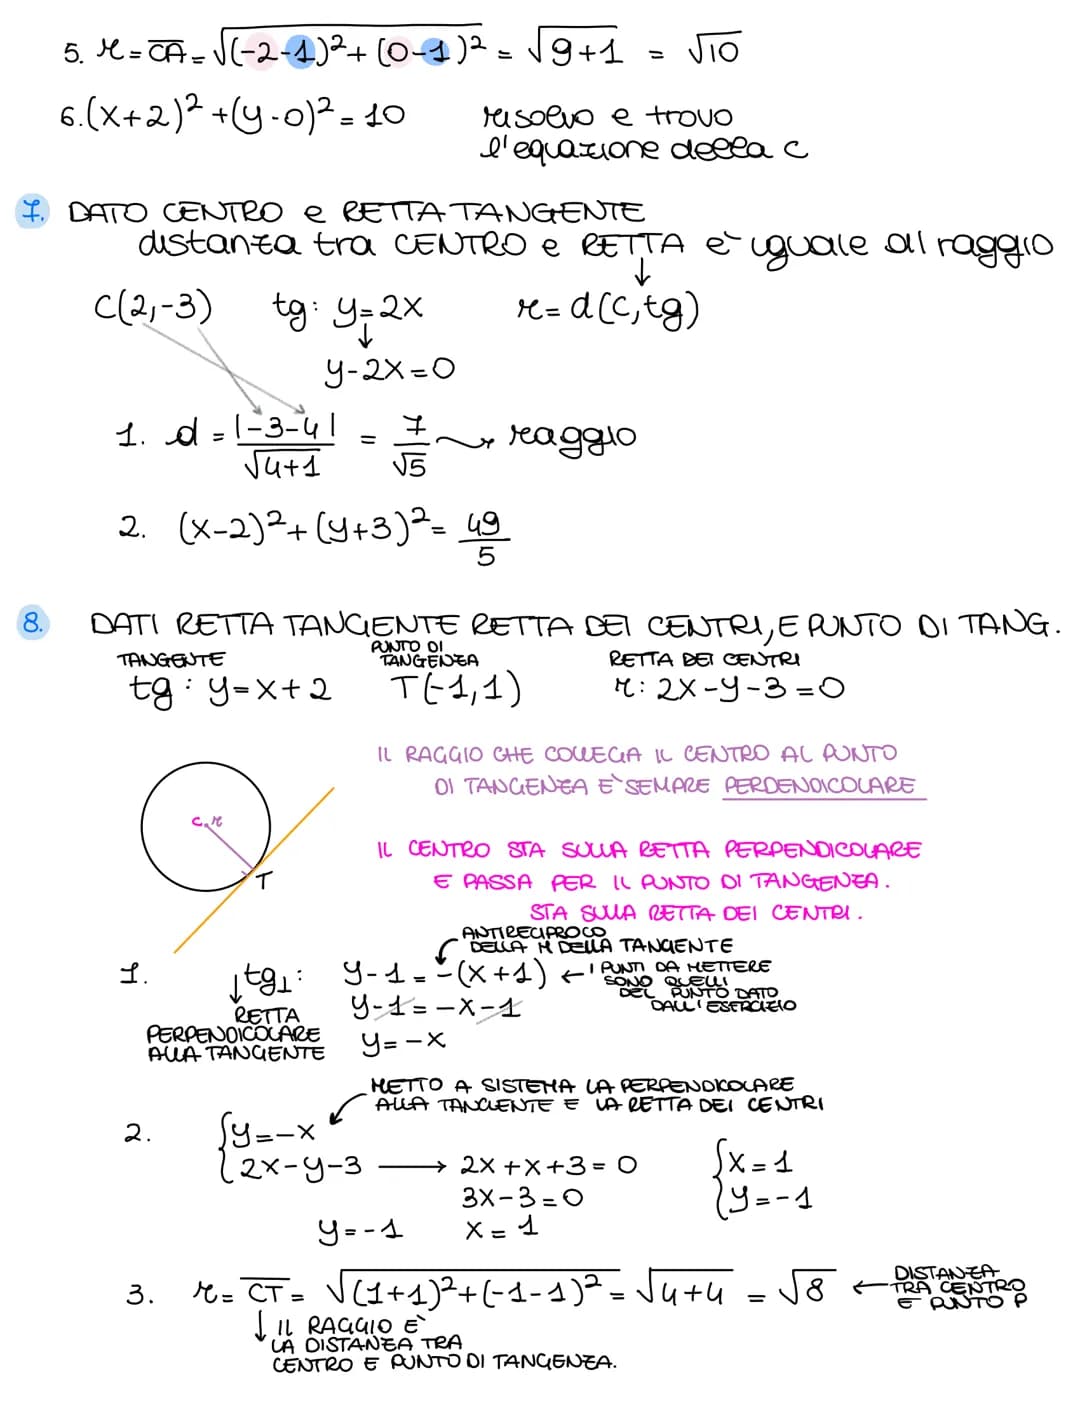 5. r = CA = √(-2-1)² + (0-1)² = √9+1 = √10
6. (x+2)² + (y-0)² = 10 risolvo e trovo
l'equazione della c
7. DATO CENTRO e RETTA TANGENTE
distanza tra CENTRO e RETTA e` uguale al raggio
C(2,-3) tg: y=2x r = d(C,tg)
y-2x=0
1. d = |-3-4| / √4+1 = 7/√5 raggio
2. (x-2)² + (y+3)² = 49/5
8. DATI RETTA TANGENTE RETTA DEI CENTRI, E PUNTO DI TANG.
TANGENTE PUNTO DI TANGENZA RETTA DEI CENTRI
tg: y=x+2 T(-1,1) r: 2x-y-3=0
IL RAGGIO CHE COLLEGA IL CENTRO AL PUNTO
DI TANGENZA E` SEMPRE PERDENDICOLARE
C, r
IL CENTRO STA SULLA RETTA PERPENDICOLARE
T
E PASSA PER IL PUNTO DI TANGENZA.
STA SULLA RETTA DEI CENTRI.
ANTIRECIPROCO
DELLA M DELLA TANGENTE
1. tg⊥: y-1 = -(x+1) ← I PUNTI DA METTERE
SONO QUELLI
DEL PUNTO DATO
DALL'ESERCIZIO
y-1 = -x-1
RETTA
PERPENDICOLARE
ALLA TANGENTE
y = -x
METTO A SISTEMA LA PERPENDICOLARE
ALLA TANGENTE E LA RETTA DEI CENTRI
2. { y=-x
{ 2x-y-3 → 2x+x+3=0 { x=1
3x-3=0 { y=-1
y=-1 x=1
3. r = CT = √(1+1)² + (-1-1)² = √4+4 = √8 ← DISTANZA
TRA CENTRO
E PUNTO P
↓ IL RAGGIO E`
LA DISTANZA TRA
CENTRO E PUNTO DI TANGENZA.